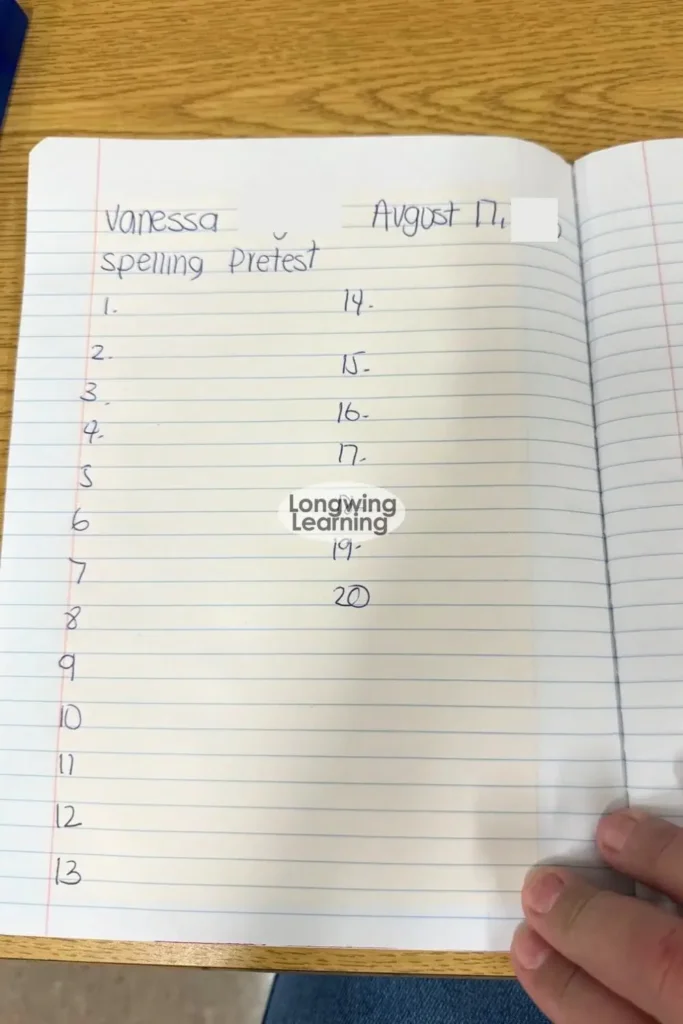 Vanessa August 17,
Spelling Pretest
1.
2.
3.
4.
5
6
7
8
9
10
11
12
13
14.
15.
16.
17.
Longwing
Learning
19.
20